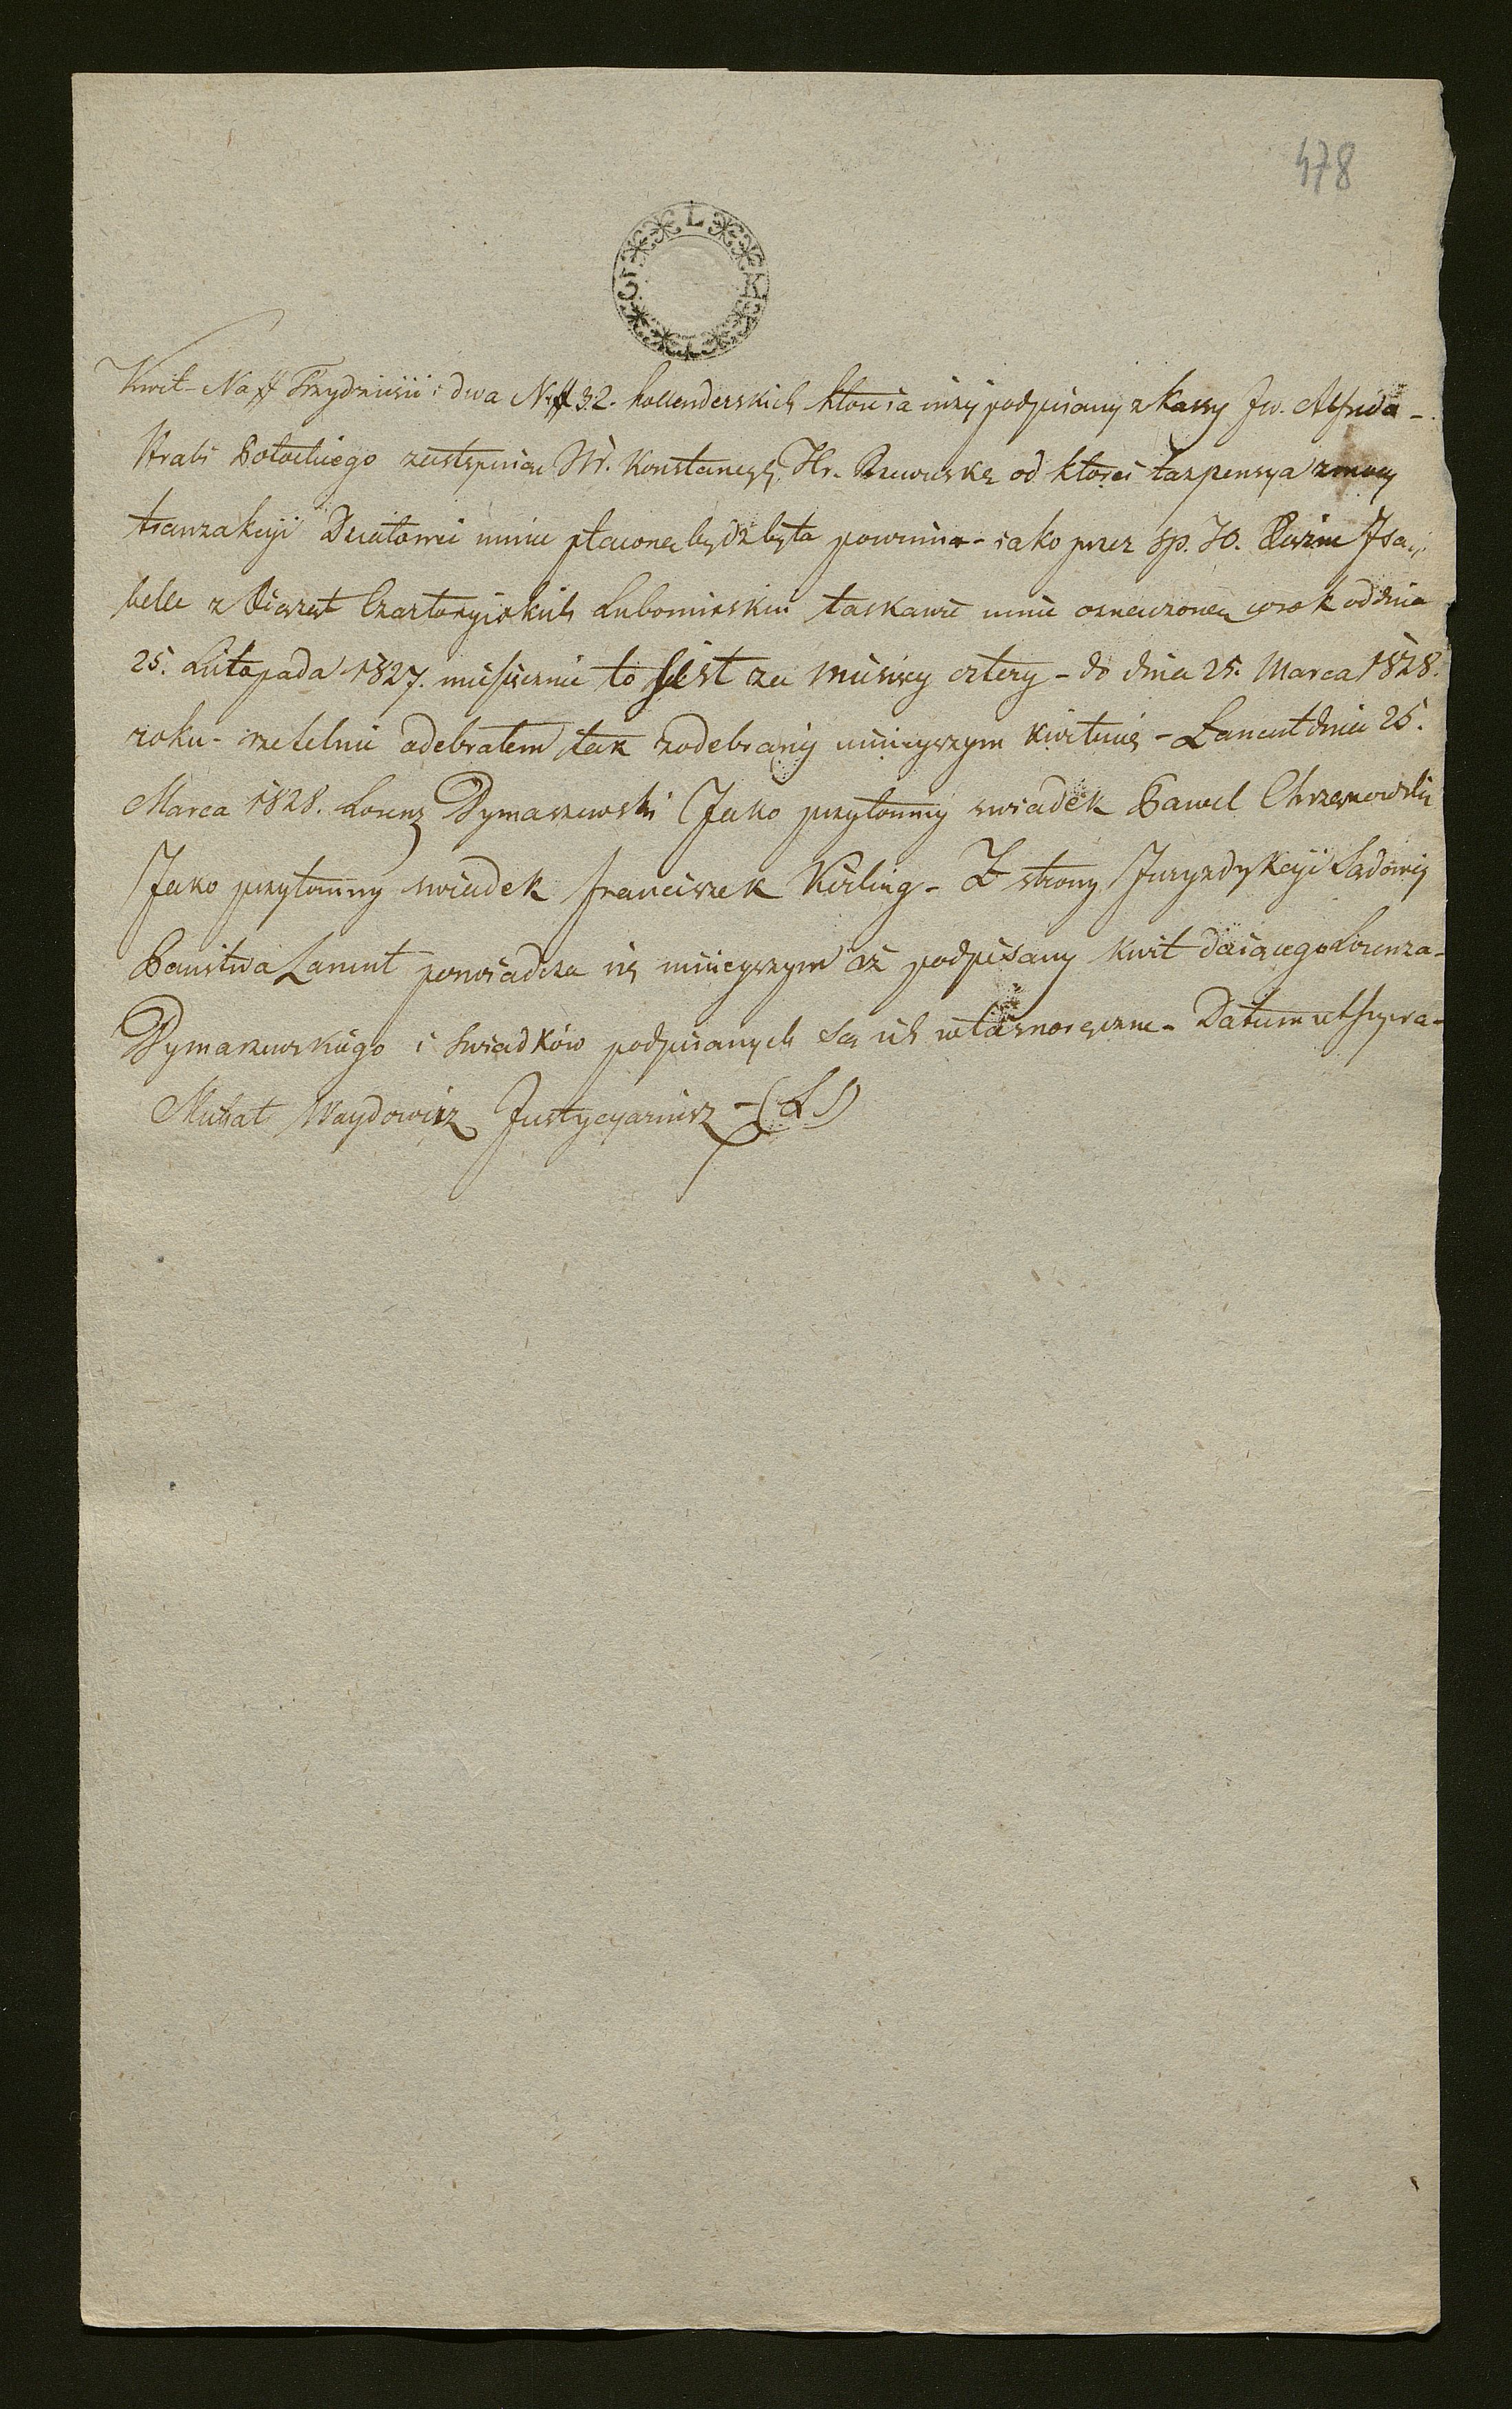 478
L
C K
Kwit - Na # Trzydzieści i dwa N. # 32. hollenderskich które ia niżej podpisany z kassy Jw. Alfreda -
Hrabi Potockiego zastępuiąc JW. Konstancyą Hr. Rzewuską od którei ta pensya z mocy
tranzakcyi Działowei mnie płaconą bydź była powinna - iako przez Sp. JO. Xiężnę Isa-
bellę z Xiążąt Czartoryiskich Lubomirską łaskawie mnie oznaczoną w rok od dnia
25. Listopada 1827. miesięcznie to jest za miesięcy cztery - do dnia 25. Marca 1828.
roku - rzetelnie odebrałem, tak z odebraney ninieyszym kwituię - Lancut dnia 25.
Marca 1828. Lorenz Dymaszewski Jako przytomny swiadek Pawel Chrzanowski
Jako przytomny swiadek Franciszek Kirling - Z strony Juryzdykcyi Sądowey
Państwa Lancut poswiadcza się ninieyszym iż podpisany kwit daiącego Lorenza -
Dymaszewskiego i Swiadków podpisanych są ich własnoręczne - Datum ut supra -
Michał Waydowicz Justycyariusz - (LS)